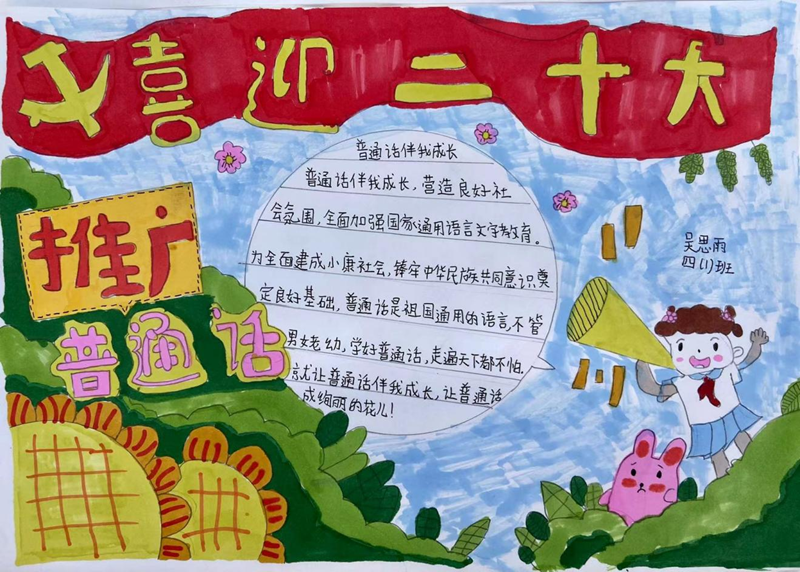 喜迎二十大
推广
普通话
普通话伴我成长
普通话伴我成长，营造良好社
会氛围，全面加强国家通用语言文字教育。
为全面建成小康社会，铸牢中华民族共同意识奠
定良好基础，普通话是祖国通用的语言，不管
男女老幼，学好普通话，走遍天下都不怕。
就让普通话伴我成长，让普通话
成绚丽的花儿！
吴思雨
四（1）班